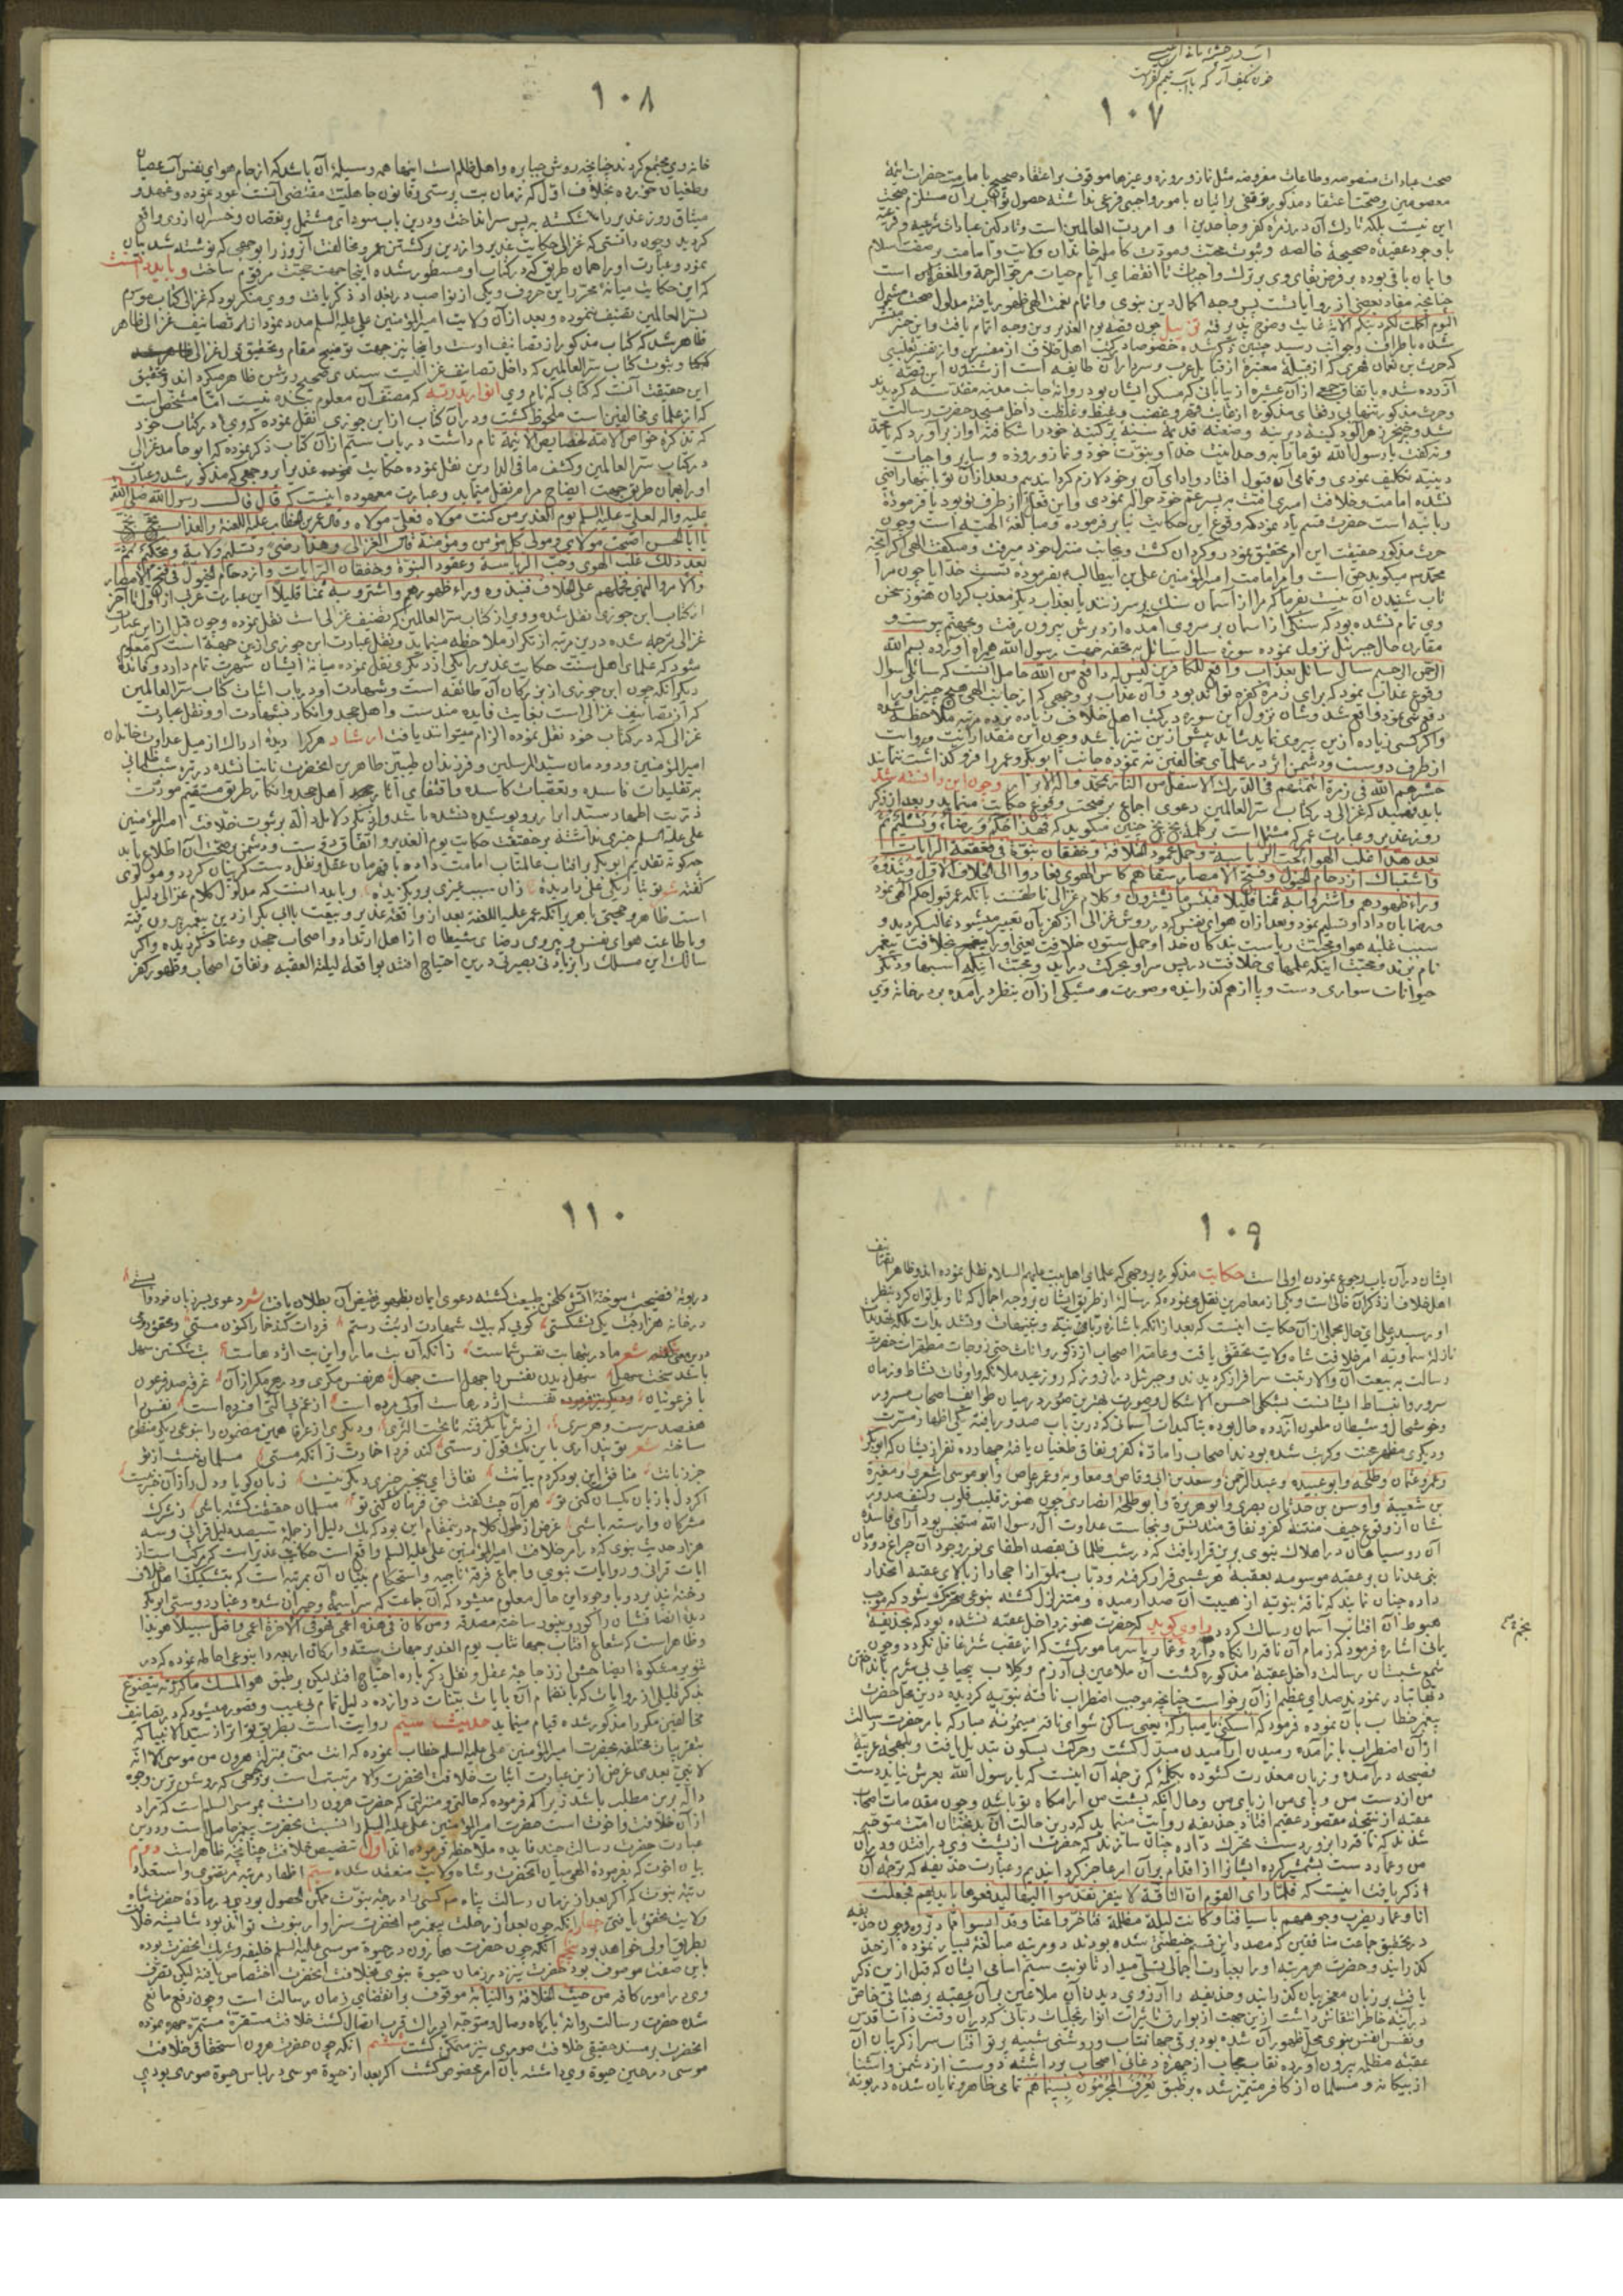 ۱۰۷
صحت عبادات منصوصه وطاعات مفروضه مثل نماز و روزه وغیرها موقوف بر اعتقاد صحیح بامامت حضرات ائمهٔ
معصومین
این نیست بلکه تارک آن در زمرهٔ کفر
با وجود عقیدهٔ صحیحهٔ خالصه و ثبوت محبت و مودت کامله خاندان ولایت و امامت
و ایمان باقی بوده بر فرض بقای وی بر ترک واجبات تا انقضای ایام حیات مرجو الرحمة والمغفرة است
چنانچه مفاد بعضی از روایات است پس وجه اکمال دین نبوی و اتمام نعمت الهی ظهور یافته مدلول
الیوم اکملت لکم دینکم
شده باطراف و جوانب رسید چنین ذکر شده خصوصا در کتب اهل خلاف از مفسرین
که حرث بن نعمان فهری که از قبیلهٔ معتبره از قبایل عرب و سرداران آن طایفه است از شنیدن این قصه
شد
و گفت یا رسول الله تو ما را به وحدانیت خدا و نبوت خود و نماز و روزه و سایر واجبات
دینیه تکلیف نمودی و تمامی آن قبول افتاد و ادای آن بر خود لازم گردانیدیم و بعد از آن تو باینها راضی
نشده امامت و خلافت امری است به پسر عم خود حواله نمودی و این فعل از طرف تو بود یا فرمودهٔ
ربانیه است حضرت قسم یاد نمود که وقوع این حکایت بنا بر فرموده و مبالغهٔ الهیه است و چون
حرث مذکور حقیقت این امر تحقیق نمود رو گردان گشت و بجانب منزل خود میرفت و میگفت الهی اگر آنچه
محمد میگوید حق است و امر امامت امیرالمؤمنین علی بن ابیطالب بفرمودهٔ تست خدایا چون مرا
تاب شنیدن آن نیست بفرما که مرا از آسمان سنگ بر سر زنند یا بعذاب دیگر معذب گردان هنوز سخن
وی تمام نشده بود که سنگی از آسمان بر سر وی آمده از دبرش بیرون رفت و بجهنم پیوست و
مقارن حال جبرئیل نزول نموده سورهٔ سال سائل به تحفه جهت رسول الله همراه آورده بسم الله
الرحمن الرحیم سال سائل بعذاب واقع للکافرین لیس له دافع من الله حاصل آنست که سائلی سوال
وقوع عذاب نمود که برای زمرهٔ کفره تواند بود و آن عذاب بر وجهی که از جانب الهی هیچ چیز او را
دفع نمی نمود واقع شد و شان نزول این سوره در کتب اهل خلاف زیاده
از طرف دوست و دشمن
حشرهم الله فی زمرة ائمتهم فی الدرک الاسفل من النار بمحمد وآله الابرار و چون این دانسته شد
باید فهمید که غزالی در کتاب سر العالمین دعوی اجماع بر صحت وقوع حکایت مینماید و بعد از ذکر
روز غدیر و عبارت عمر که مشتمل است بر کلمهٔ بخ بخ چنین میگوید که فهذا حکم و رضاء و تسلیم ثم
بعد هذا غلب الهوا لحب الریاسة و حمل عمود الخلافة و خفقان بنوة فی قعقعة الرایات
و اشتباک ازدحام الخیول و فتح الامصار سقاهم کاس الهوی فعادوا الی الخلاف الاول و نبذوه
وراء ظهورهم و اشتروا به ثمنا قلیلا فبئس ما یشترون و کلام غزالی ناطقست بآنکه عمر قبول حکم الهی نمود
و رضا بآن داد و تسلیم نمود و بعد از آن هوای نفس
سبب غلبه هوا و محبت ریاست بندگان خدا و حمل ستون خلافت
نام بردند و محبت اینکه علمهای خلافت در پس سر او بحرکت در آید و محبت اینکه اسبها و دیگر
حیوانات سواری دست و پا از هم گذرانیده و صورت مشبکی از آن بنظر در آمده بر در خانهٔ وی
۱۰۸
خانه وی مجتمع گردند چنانچه روش جبابره و اهل ظلم است اینها همه وسیلهٔ آن باشد که از جام هوای نفس آب عصیان
و طغیان خورده بخلاف اول که زمان بت پرستی و قانون جاهلیت مقتضی آنست عود نموده و عهد و
میثاق روز غدیر را شکسته به پس سر انداخت و درین باب سودای مشتمل بر نقصان و خسران از وی واقع
گردید و چون دانستی که غزالی حکایت غدیر
نمود و عبارت او را بهمان طریق که در کتاب او مسطور شده اینجا جهت حجت مرقوم ساخت و باید دانست
که این حکایت میانهٔ محرر این حروف و یکی از نواصب در بغداد ذکر یافت و وی منکر بود که غزالی کتاب موسوم
بسر العالمین تصنیف ننموده و بعد از آن ولایت امیرالمؤمنین علی علیه السلم مدد نمود
ظاهر شد که کتاب مذکور از تصانیف اوست و اینجا نیز جهت توضیح مقام و تحقیق
و ثبوت کتاب سر العالمین که داخل تصانیف غزالیست
این حقیقت آنست که کتابی که نام وی انوار بدریه که مصنف آن معلوم بنده نیست اما مشخص است
که از علمای مخالفین است ملحوظ گشت و در آن کتاب از ابن جوزی نقل نموده که وی در کتاب خود
که تذکرة خواص الامة لخصایص الائمة نام داشت در باب سیم از آن کتاب ذکر نموده که ابو حامد غزالی
در کتاب سر العالمین و کشف ما فی الدارین نقل نموده حکایت غدیر را بر وجهی که مذکور شد و عبارت
او را بهمان طریق جهت ایضاح مرام نقل مینماید و عبارت معهوده اینست که قال قال رسول الله صلی الله
علیه واله لعلی علیه السلم یوم الغدیر من کنت مولاه فعلی مولاه وقال عمر بن الخطاب علیه اللعنة والعذاب بخ بخ
یا ابا الحسن اصبحت مولای و مولی کل مؤمن و مؤمنة قال الغزالی و هذا رضی و تسلیم ولایة و تحکیم ثم
بعد ذلک غلب الهوی و حب الریاسة و عقود البنود و خفقان الرایات و ازدحام الخیول فی فتح الامصار
والامر والنهی فحملهم علی الخلاف فنبذوه وراء ظهورهم و اشتروا به ثمنا قلیلا این عبارت عربی از اول تا آخر
از کتاب ابن جوزی نقل شده و وی از کتاب سر العالمین که تصنیف غزالی است نقل نموده و چون قبل از این عبارت
غزالی ترجمه شده درین مرتبه از تکرار ملاحظه مینماید و نقل عبارت ابن جوزی ازین جهت است که معلوم
شود که علمای اهل سنت حکایت غدیر را یکی از دیگری نقل نموده میانهٔ ایشان شهرت تمام دارد و فایدهٔ
دیگر آنکه چون ابن جوزی از بزرگان آن طائفه است و شهادت او در باب اثبات کتاب سر العالمین
که از تصانیف غزالی است بغایت فایده مندست و اهل جحد و انکار بشهادت او و نقل عبارت
غزالی که در کتاب خود نقل نموده الزام میتوانند یافت ارشاد هر کرا دیدهٔ ادراک از میل عداوت خاندان
امیرالمؤمنین و دودمان سید المرسلین و فرزندان طیبین طاهرین آنحضرت نابینا نشده
بر تقلیدات فاسده و تعصبات کاسده و اقتفای آثار اهل جحد و انکار طریق مستقیم مودت
ذریت اطهار سید ابرار برو پوشیده نشده باشد و از دیگر دلایل داله بر ثبوت خلافت امیرالمؤمنین
علی علیه السلم خبری نداشته بر حقیقت حکایت یوم الغدیر و اتفاق دوست و دشمن بر صحت آن اطلاع یابد
چگونه تقدیم ابو بکر بر آفتاب عالمتاب امامت داده با قهرمان عقل و نقل دست
گفته شعر
است ظاهر
و با طاعت هوای نفس و پیروی رضای شیطان از اهل ارتداد و اصحاب جحد و عناد گردیده و اگر
سالک این مسلک را بزیادتی بصیرتی درین احتیاج افتد بواقعه لیلة العقبه و نفاق اصحاب و ظهور کفر
۱۰۹
ایشان در آن باب رجوع نمودن اولی است حکایت مذکوره بر وجهی که علمای اهل بیت علیهم السلام نقل نموده اند و ظاهرا تصانیف
اهل خلاف از ذکر آن خالی است و یکی از معاصرین نقل می نموده که رسالهٔ از طریق ایشان بر وجه اجمال
اجمالی از آن حکایت اینست که بعد از آنکه باشارهٔ ربانیه
نازلهٔ سماویه امر خلافت شاه ولایت تحقق یافت و عامهٔ اصحاب از ذکور و اناث حتی زوجات مطهرات حضرت
رسالت به بیعت آن والا رتبت سرافراز گردیدند و جبرئیل در آن روز که روز عید ملائکه و اوقات نشاط و زمان
سرور و انبساط ایشانست بشکل احسن الاشکال و صورت بهترین صور در میان طوایف اصحاب مسرور
و خوشحال و شیطان ملعون آزرده حال بوده
و دیگری مظهر محنت و کربت شده بودند اصحاب را مادهٔ کفر و نفاق طغیان یافته چهارده نفر از ایشان که ابو بکر
و عمر و عثمان و طلحه و ابو عبیده و عبد الرحمن و سعد بن ابی وقاص و معاویه و عمرو عاص و ابو موسی اشعری و مغیرة
بن شعبة و اوس بن حدثان بصری و ابو هریرة و ابو طلحه انصاری چون هنوز
شان از وقوع جیف منتنهٔ کفر و نفاق متدنس و نجاست عداوت آل رسول الله متنجس بود آرای فاسدهٔ
آن روسیاهان در اهلاک نبوی برین قرار یافت که در شب ظلمانی بقصد اطفای نور وجود آن چراغ دودمان
بنی عدنان بر عقبهٔ موسومه بعقبهٔ هرشی قرار گرفته و دباب مملو از احجار از بالای عقبه انحدار
داده چنان نمایند که ناقهٔ نبویه از هیبت آن صدا رمیده و متزلزل گشته بنوعی متحرک شود که موجب
هبوط آن آفتاب آسمان رسالت گردد راوی گوید که حضرت هنوز داخل عقبه نشده بود که بحذیفهٔ
یمانی اشاره فرمود که زمام آن ناقه را نگاه دارد و عمار یاسر مامور گشت که از عقب شتر غافل نگردد و چون
شمع شبستان رسالت داخل عقبهٔ مذکوره گشت آن ملاعین بی آزرم و کلاب بیحیای بی شرم
دفعها تبادر نمودند صدای عظیم از آن برخواست چنانچه موجب اضطراب ناقهٔ نبویه گردیده درین محل حضرت
پیغمبر خطاب بآن نموده فرمود که اسکنی یا مبارکة یعنی ساکن شو ای ناقهٔ میمونهٔ مبارکه ناقهٔ حضرت رسالت
از آن اضطراب باز آمده و رمیدن بآرمیدن مبدل گشت و حرکت بسکون تبدیل یافت و بلهجهٔ عربیهٔ
فصیحه در آمده و زبان معذرت گشوده بکلمهٔ که ترجمهٔ آن اینست که یا رسول الله بعرش نیاید دست
من از دست من و پای من از پای من و حال آنکه پشت من آرامگاه تو باشد و چون مقدمات اصحاب
عقبه از نتیجهٔ مقصود عقیم افتاد حذیفه روایت مینماید که درین حالت آن بدبختان امت متوجه
شدند که ناقه را بزور دست محرک داده چنان سازند که حضرت از پشت وی در افتد و در آن
من و عمار دست بشمشیر کرده ایشان را از اقدام بر آن امر عاجز گردانیدیم و عبارت حذیفه که ترجمهٔ آن
ذکر یافت اینست که فلما رأی القوم ان الناقة لا ینفر تقدموا الیها لیدفعوها بایدیهم فجعلت
انا و عمار یضرب وجوههم باسیافنا و کانت لیلة مظلمة فتاخروا عنا وقد ایسوا مما دبروه و چون حذیفه
در تحقیق جماعت منافقین که مصدر این قسم خبطی شده بودند دو مرتبه مبالغهٔ بسیار نموده از حد
گذرانید و حضرت هر مرتبه او را بعبارت اجمالی تسلی میداد تا نوبت سیم اسامی ایشان که قبل ازین ذکر
یافت بر زبان معجز بیان گذرانید و حذیفه را آرزوی دیدن آن ملاعین بر آن عقبه
در آینهٔ خاطر انتقاش داشت
و نفس انفس نبوی محل ظهور آن شده بود برقی جهانتاب و روشنی شبیه پرتو آفتاب سر از گریبان آن
عقبه مظلمه بیرون آورده نقاب حجاب از چهرهٔ دغای اصحاب برداشته دوست از دشمن و آشنا
از بیگانه و مسلمان از کافر متمیز شده بر طبق یعرف المجرمون بسیماهم تمامی ظاهر و نمایان شده در بوتهٔ
۱۱۰
در بوتهٔ فضیحت سوخته آتش گلخن طبیعت گشته دعوی ایمان بظهور نقیض آن بطلان یافت شعر دعوی
در خانه هزار بت یکی نشکستی گویی که بیک شهادت از بت رستم فردات کند خمار کاکنون مستی
شعر مادر بتها بت نفس شماست زانکه آن بت مار و این بت اژدهاست بت شکستن سهل
باشد سخت سهل سهل دیدن نفس را جهل است جهل هر نفس مکری و در هر مکر از آن غرقه صد فرعون
با فرعونیان نفست اژدرهاست او کی مرده است از غم بی آلتی افسرده است نفس را
هفصد سرست و هر سری از ثریا بگذشته تا تحت الثری و دیگری از عرفا همین مضمون را بنوعی دیگر منظوم
ساخته شعر تو پنداری باین یک قول رستی کند فردا خمارت زانکه مستی مسلمان نیست از تو
جز زبانت منافق این بود کردم بیانت نفاق ای بیخبر چیزی دگر نیست زبان گویا و دل را زان خبر نیست
اگر دل با زبان یکسان کنی تو هر آن چت گفت حق فرمان کنی تو مسلمان حقیقت گشته باشی ز شرک
مشرکان وارسته باشی غرض از طول کلام درین مقام این بود که یک دلیل از جملهٔ سیصد دلیل قرآنی و سه
هزار حدیث نبوی که در امر خلافت امیرالمؤمنین علی علیه السلم واقع است حکایت غدیر است
آیات قرآنی و روایات نبوی و اجماع فرقهٔ ناجیه و استحکام بنیان آن بمرتبه است که بتشکیک اهل خلاف
رخنه پذیرد و با وجود این حال معلوم میشود که آن جماعت که سراسیمه و حیران شده و غبار دوستی ابوبکر
دیدهٔ انصافشان را کور و بی نور ساخته مصداق و من کان فی هذه اعمی فهو فی الآخرة اعمی و اضل سبیلا
و ظاهر است که شعاع آفتاب جهانتاب یوم الغدیر
بذکر قلیلی از روایات که بانضمام آن بآیات بینات دوازده دلیل تمام بی عیب و قصور میشود که در تصانیف
مخالفین مکررا مذکور شده قیام مینماید حدیث سیم روایت است بطریق تواتر از سید الانبیا که
بتقریبات مختلفه بحضرت امیرالمؤمنین علی علیه السلم خطاب نموده که انت منی بمنزلة هرون من موسی الا انه
لا نبی بعدی غرض ازین عبارت اثبات خلافت آنحضرت والا مرتبت است بوجهی که روشن ترین وجوه
داله برین مطلب باشد زیرا که فرموده که حالتی و منزلتی که حضرت هرون داشت بموسی السلم است که مراد
از آن خلافت و اخوت است حضرت امیرالمؤمنین علی علیه السلم را نسبت بحضرت پیغمبر حاصل است و درین
عبارت حضرت رسالت چند فایده ملاحظه فرموده اند اول تنصیص خلافت چنانچه ظاهر است دویم
بیان اخوت که بفرمودهٔ الهی میان آنحضرت و شاه ولایت منعقد شده سیم اظهار مرتبهٔ مرتضوی و استعداد
رتبهٔ نبوت که اگر بعد از زمان رسالت پناه کسی را درجهٔ نبوت ممکن الحصول بودی در مادهٔ حضرت شاه
ولایت محقق یافتی چهارم آنکه چون بعد از رحلت پیغمبر آنحضرت سزاوار نبوت تواند بود شایستهٔ خلافت
بطریق اولی خواهد بود پنجم آنکه چون حضرت هارون در حیوة موسی علیه السلم خلیفه و شریک آنحضرت بوده
باین صفت موصوف بود حضرت نیز در زمان حیوة نبوی بخلافت آنحضرت اختصاص یافته لیکن تصرف
وی در امور کافه من حیث الخلافة والنیابة موقوف بر انقضای زمان رسالت است و چون رفع مانع
شده حضرت رسالت روانهٔ بارگاه وصال و متوجه ادراک قرب اتصال گشت خلافت مستقره مستمره نموده
آنحضرت بر مسند حقیقی خلافت صوری نیز متمکن گشت ششم آنکه چون حضرت هرون استحقاق خلافت
موسی در حین حیوة وی داشته بآن امر مخصوص گشت اگر بعد از حیوة موسی در لباس حیوة صوری بودی